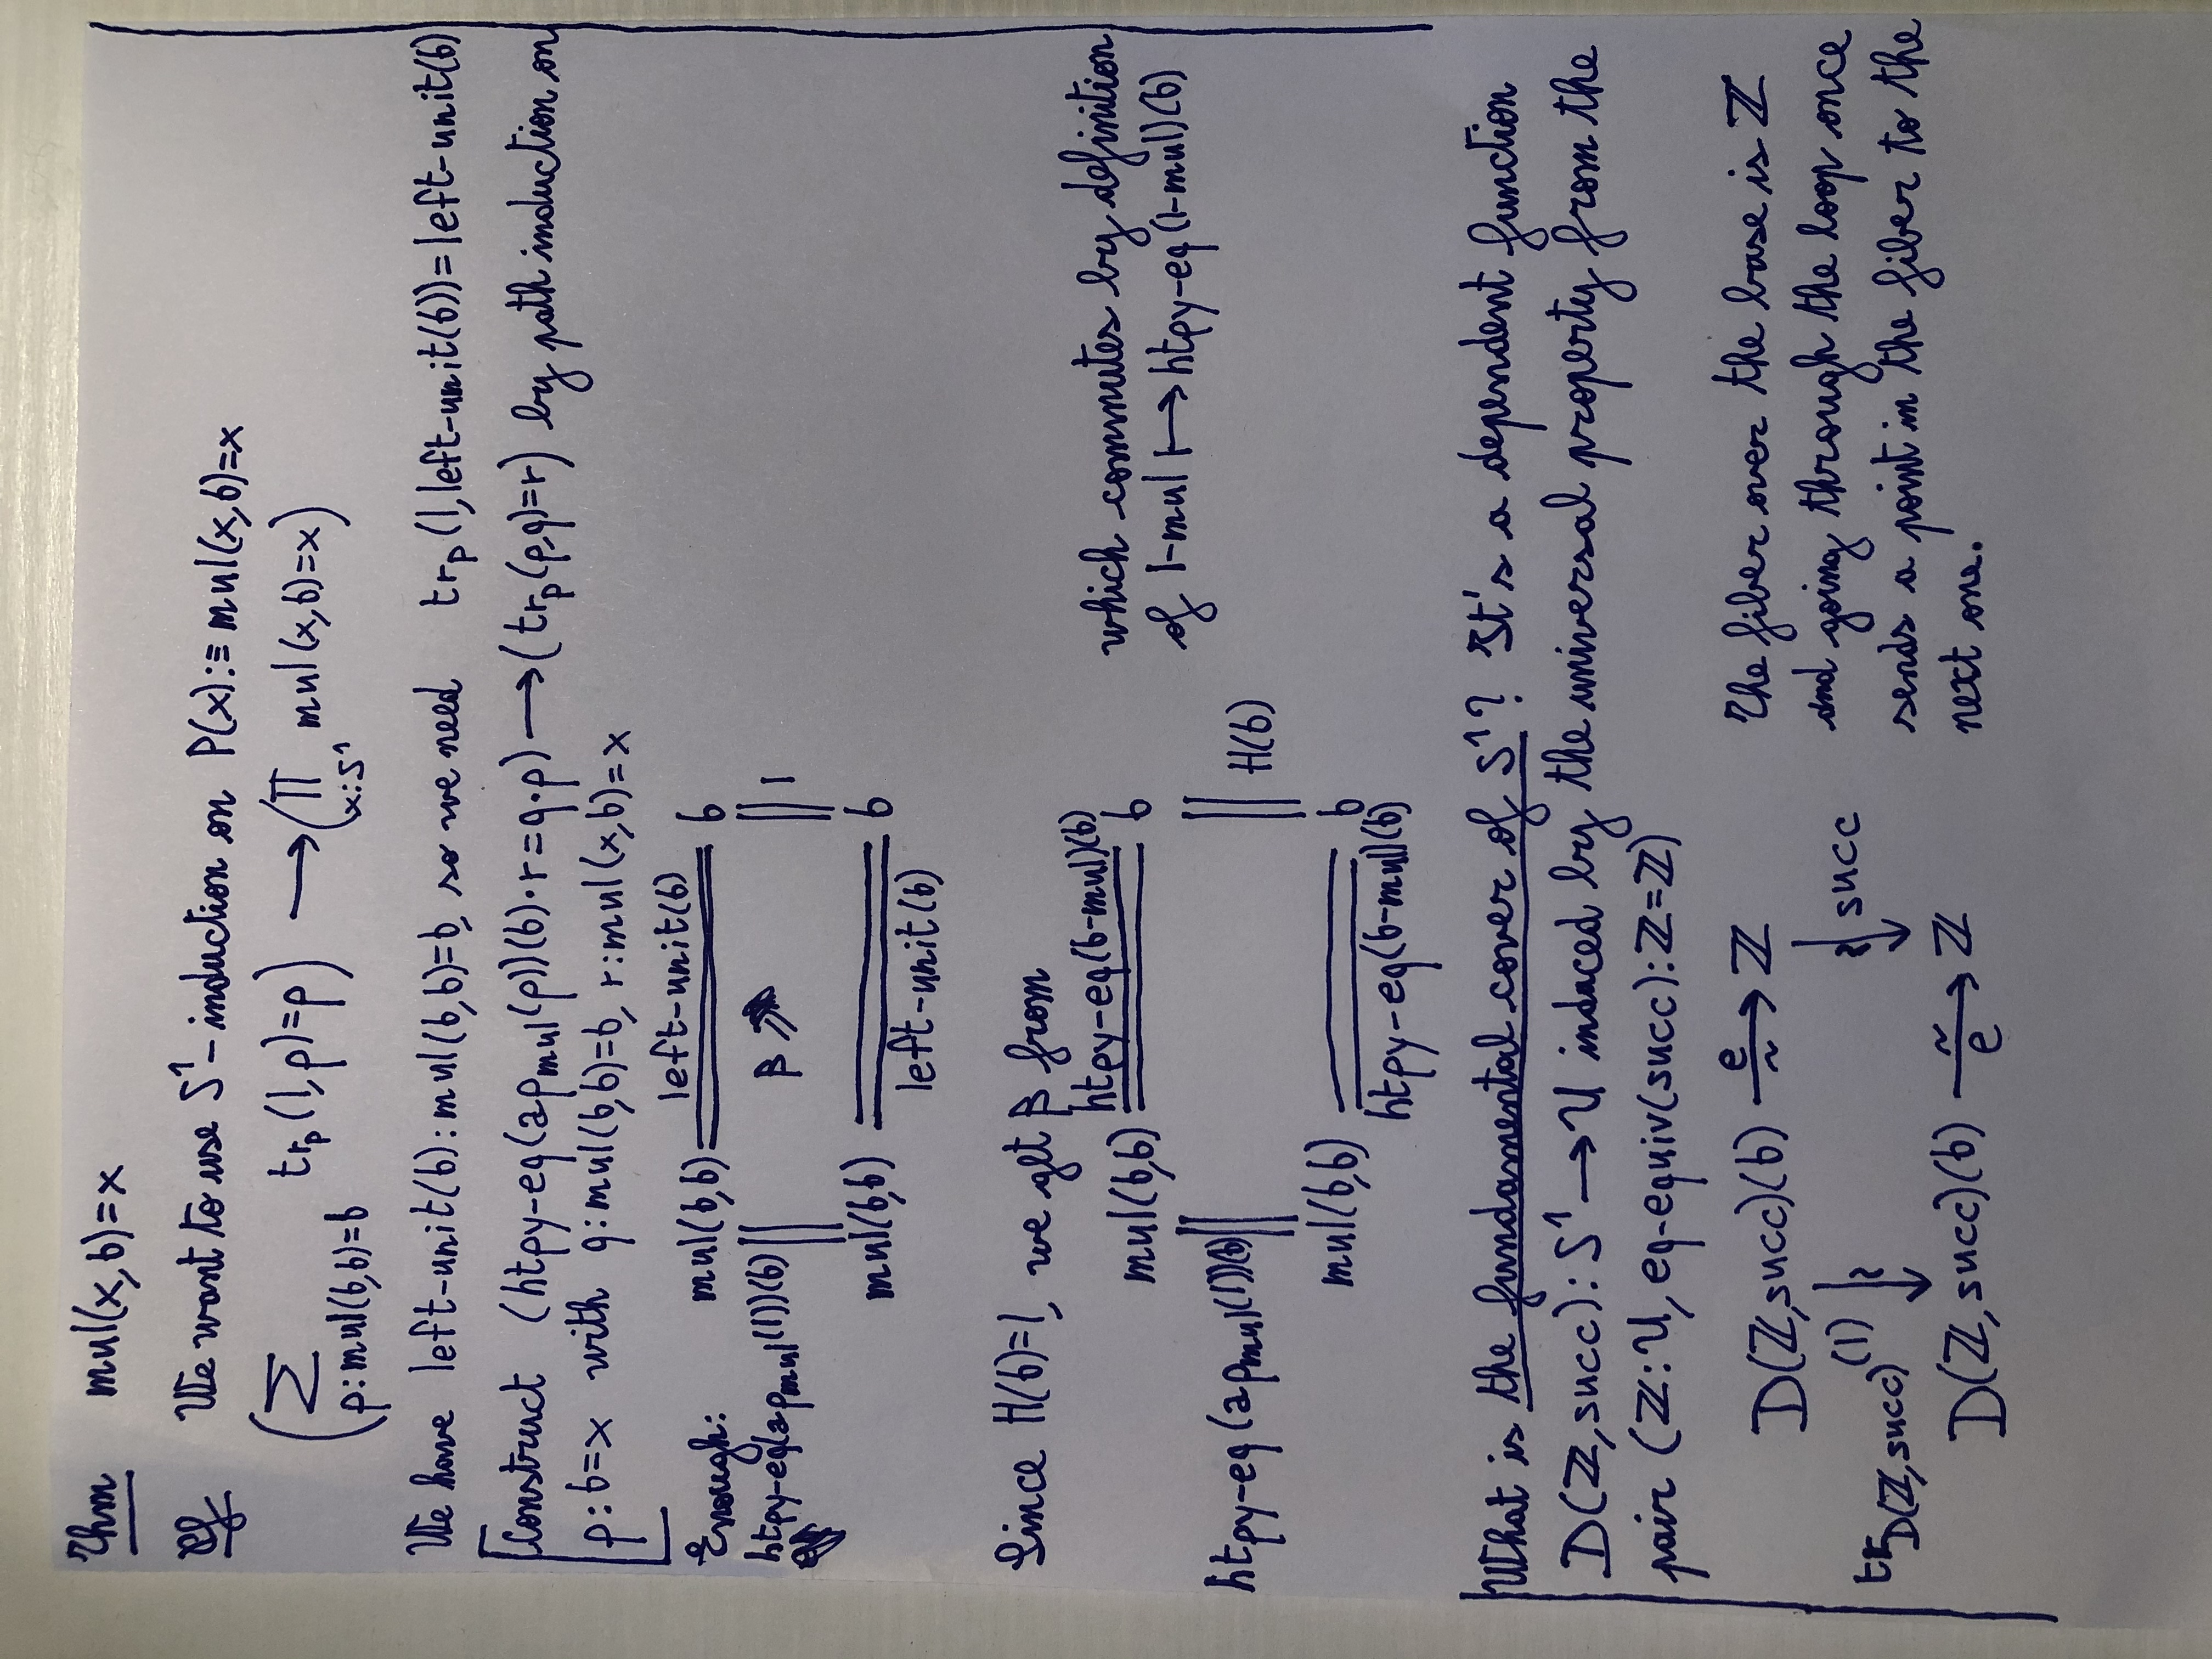 Thm mul(x,b)=x
Pf We want to use S¹-induction on P(x):≡mul(x,b)=x
(Σ_{p:mul(b,b)=b} tr_P(l,p)=p) → (Π_{x:S¹} mul(x,b)=x)
We have left-unit(b):mul(b,b)=b, so we need tr_P(l,left-unit(b))=left-unit(b)
[Construct (htpy-eq(ap_mul(p))(b)·r=q·p) → (tr_P(p,q)=r) by path induction on
p:b=x with q:mul(b,b)=b, r:mul(x,b)=x
left-unit(b)
Enough: mul(b,b) b
htpy-eq(ap_mul(l))(b) β l
mul(b,b) b
left-unit(b)
Since H(b)=l, we get β from
htpy-eq(b-mul)(b)
mul(b,b) b
which commutes by definition
of l-mul ↦ htpy-eq(l-mul)(b)
htpy-eq(ap_mul(l))(b) H(b)
mul(b,b) b
htpy-eq(b-mul)(b)
What is the fundamental cover of S¹? It's a dependent function
D(ℤ,succ):S¹→U induced by the universal property from the
pair (ℤ:U, eq-equiv(succ):ℤ=ℤ)
D(ℤ,succ)(b) →^e_~ ℤ
tr_D(ℤ,succ)(l) succ
D(ℤ,succ)(b) →^~_e ℤ
The fiber over the base is ℤ
and going through the loop once
sends a point in the fiber to the
next one.